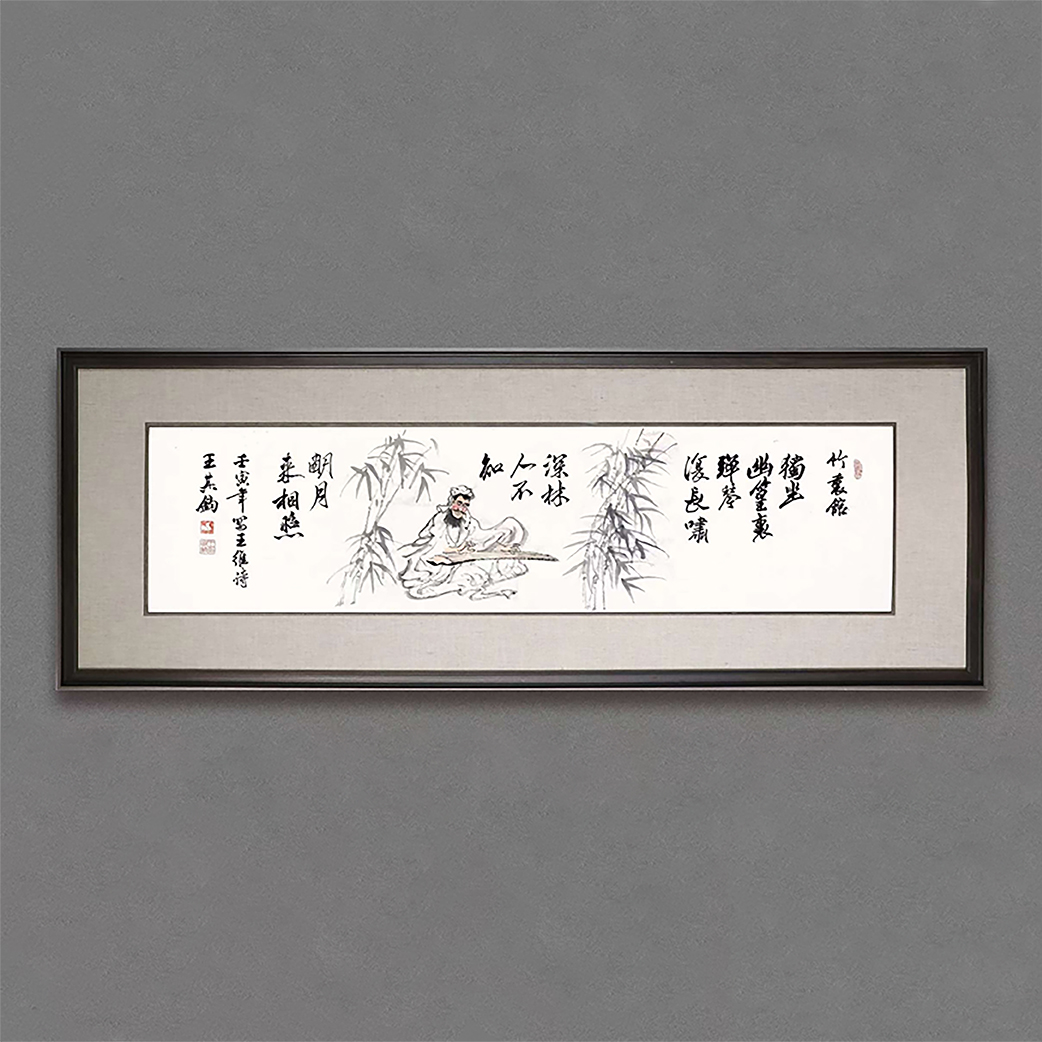 竹裏館
獨坐
幽篁裏
彈琴
復長嘯
深林
人不
知
明月
来相照
壬寅年写王維詩
王其鈞